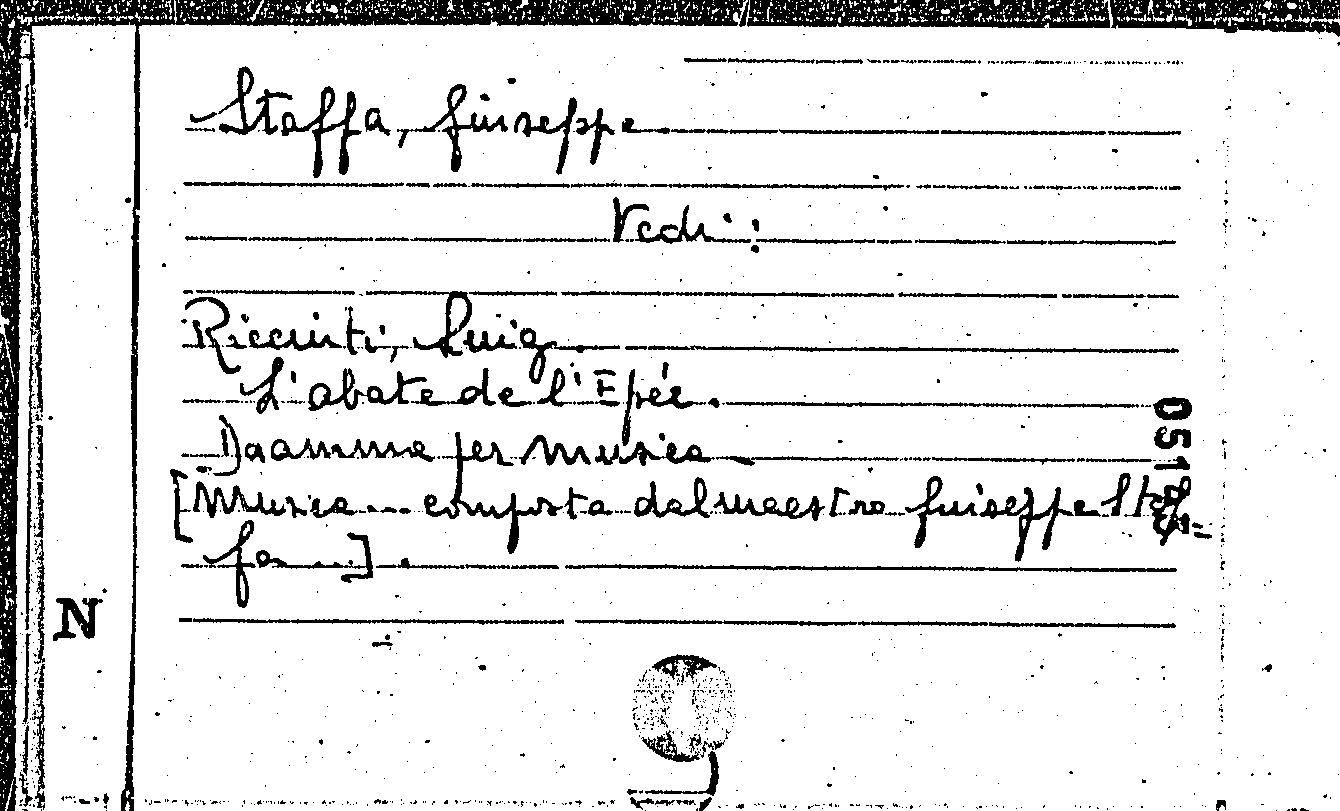 Staffa, Giuseppe
Vedi:
Ricciuti, Luigi.
L'abate de l'Epée.
Dramma per musica -
[Musica... composta dal maestro Giuseppe Staf-
fa ...].
N